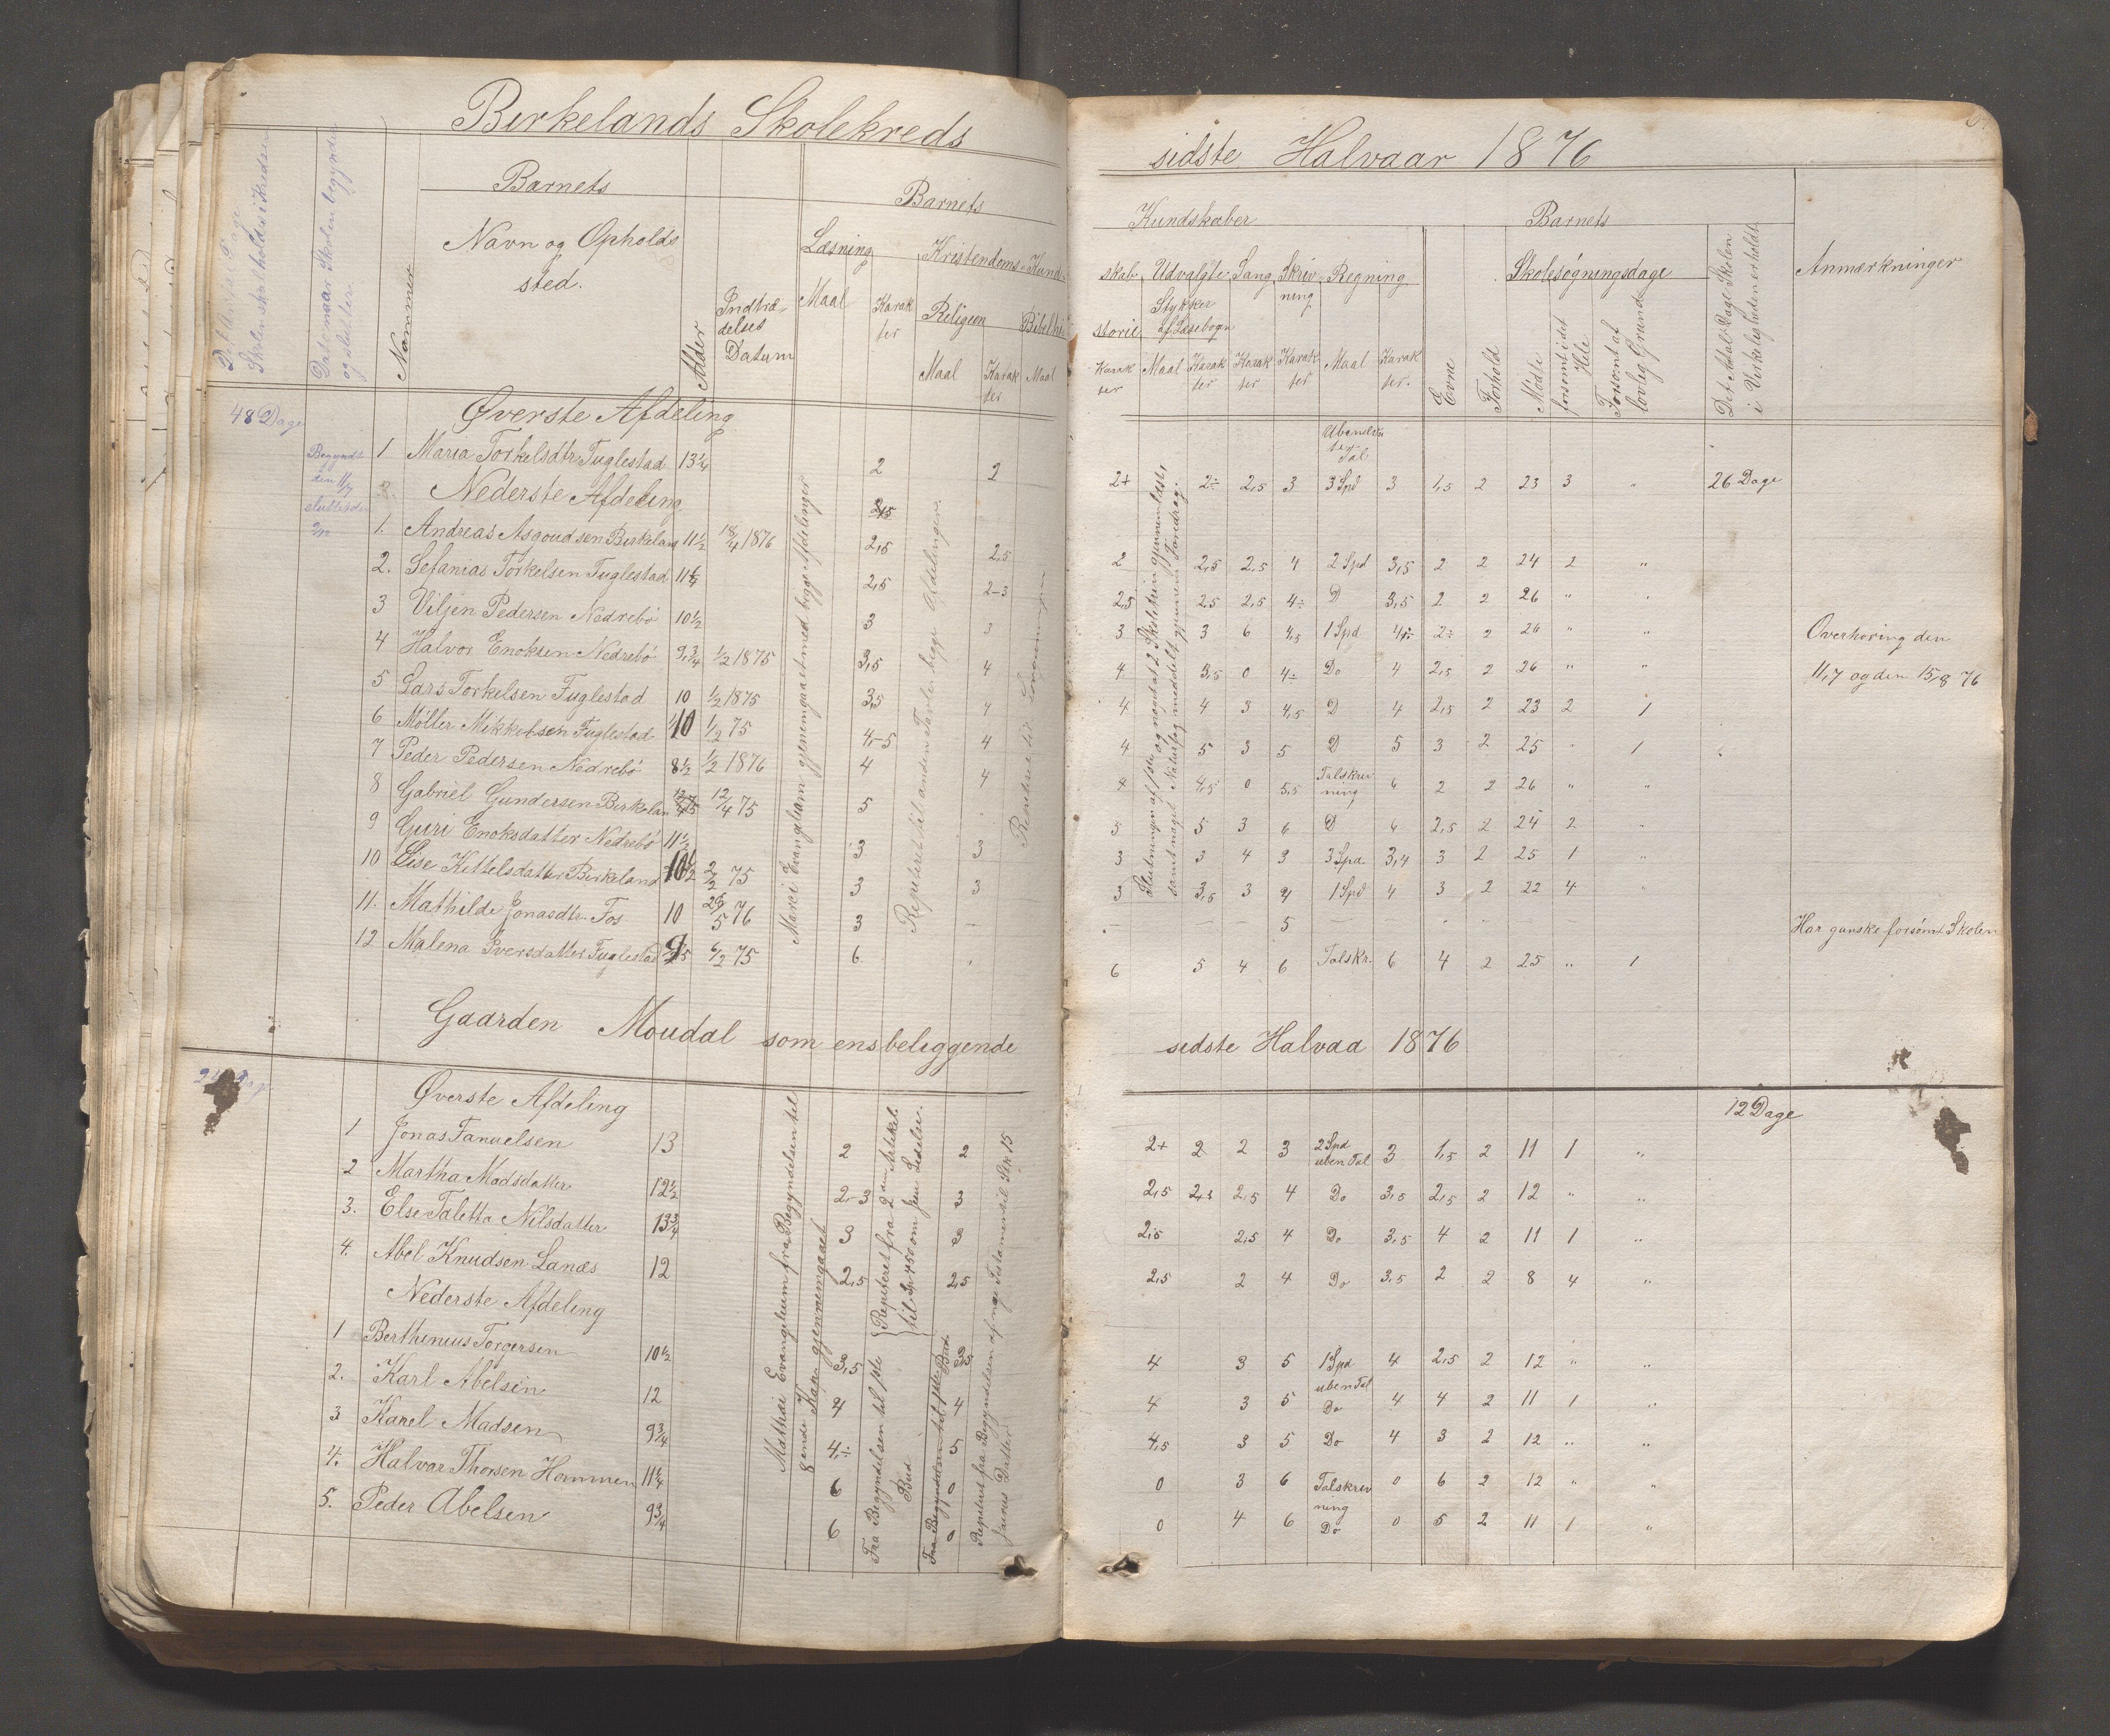 Birkelands Skolekreds
sidste Halvaar 1876
Det Antal Dage Skolen skal holdes i Kredsen
Dato naar Skolen begynder og slutter
Nommer
Barnets
Navn og Opholds
Sted.
Alder
Indtræ-
delses
Datum
Barnets
Læsning
Maal
Karak
ter
Kristendoms-Kund-
Religion
Maal
Karak
ter
Bibelhi-
Maal
Kundskaber
skab
storie
Karak
ter
Udvalgte
Stykker
af Læsebogn
Maal
Karak
ter
Sang
Karak
ter
Skriv
ning
Karak
ter
Regning
Maal
Karak
ter.
Barnets
Evne
Forhold
Skolesøgningsdage
Mødte
forsømt i det Hele
Forsømt af lovlig Grunde
Det Antal Dage Skolen i Virkeligheden erholdt
Anmærkninger
48 Dage
Øverste Afdeling
Begyndt
den 11/7
sluttet den
1 Maria Torkelsdtr Fuglestad 13¼ 2 2
2+ 2÷ 2,5 3 3 Spd 3 1,5 2 23 3 " 26 Dage
Nederste Afdeling
1. Andreas Asgoudsen Birkeland 11½ 18/4 1876 2,5 2,5
2 2,5 2,5 4 2 Spd 3,5 2 2 24 2 "
2. Sefanias Torkelsen Fuglestad 11¼ 2,5 2-3
2,5 2,5 2,5 4÷ D 3,5 2 2 26 " "
3 Viljen Pedersen Nedrebö 10½ 3 3
3 3 6 4,5 1 Spd 4÷ 2÷ 2 26 " " Overhøring den
4 Halvor Enoksen Nedrebö 9¾ ½ 1875 3,5 4
4 3,5 0 4÷ Do 4 2,5 2 26 " " 11/7 og den 15/8 76
5 Lars Torkelsen Fuglestad 10 ½ 1875 3,5 4
4 4 3 4,5 D 4 2,5 2 23 2 1
6 Møller Mikkelsen Fuglestad 10 ½ 75 4-5 4
4 5 3 5 D 5 3 2 25 " 1
7 Peder Pedersen Nedrebö 8½ ½ 1876 4 4
4 4,5 0 5,5 Talskriv
ning 6 2 2 26 " "
8 Gabriel Gundersen Birkelan 12/4 75 5
5 5 3 6 D 6 2,5 2 24 2 "
9 Guri Enoksdatter Nedrebö 11½ 3 3
3 3 4 3 3 Spd 3,4 3 2 25 1 "
10 Lise Kittelsdatter Birkeland 10½ 2/2 75 3 3
3 3,5 3 4 1 Spd 4 3 2 22 4 "
11. Mathilde Jonasdtr. Fos 10 26/5 76 3 –
5 Har ganske forsømt Skolen
12 Malena Iversdatter Fuglestad 9 6/2 75 6
6 5 4 6 Talskr. 6 4 2 25 " 1
Marci Evangelium gjennemgaaet med begge Afdelinger
Repeteret til anden Tavle begge Afdelinger.
Gaarden Moudal som ensbeliggende
sidste Halvaa 1876
Øverste Afdeling
12 Dage
1 Jonas Fanuelsen 13 2 2
2+ 2 2 3 2 Spd
uben Tal 3 1,5 2 11 1 "
2 Martha Madsdatter 12½ 2-3 3
2,5 2,5 4 Do 3,5 2,5 2 12 " "
3. Else Taletta Nilsdatter 13¾ 3 3
2,5 2,5 4 Do 3,5 4 2 11 1 "
4. Abel Knudsen Lanæs 12 2,5 2,5
2,5 2 4 Do 3,5 2 2 8 4 "
Nederste Afdeling
1 Berthinius Torgersen 10½ 3,5
4 3 5 1 Spd
uben Tal 4 2,5 2 12 " "
2. Karl Abelsen 12 4 4
4 3 5 Do 4 4 2 11 1 "
3 Karel Madsen 9¾ 4÷ 5
4,5 3 5 Do 4 3 2 12 " "
4. Halvar Thorsen Hommen 11¼ 6 0
0 3 6 Talskriv
ning 0 6 2 12 " "
5. Peder Abelsen 9¾ 6 0
0 4 6 Do 0 5 2 11 1 "
Mathæi Evangelium fra Begyndelsen til
8ende Kap. gjennemgaaet
Repeteret fra 2den Artikel
Fra Begyndelsen til 1ste
Bud
Repetert fra Begyndelsen af nye Testamente til Stk 15
Jairus Datter